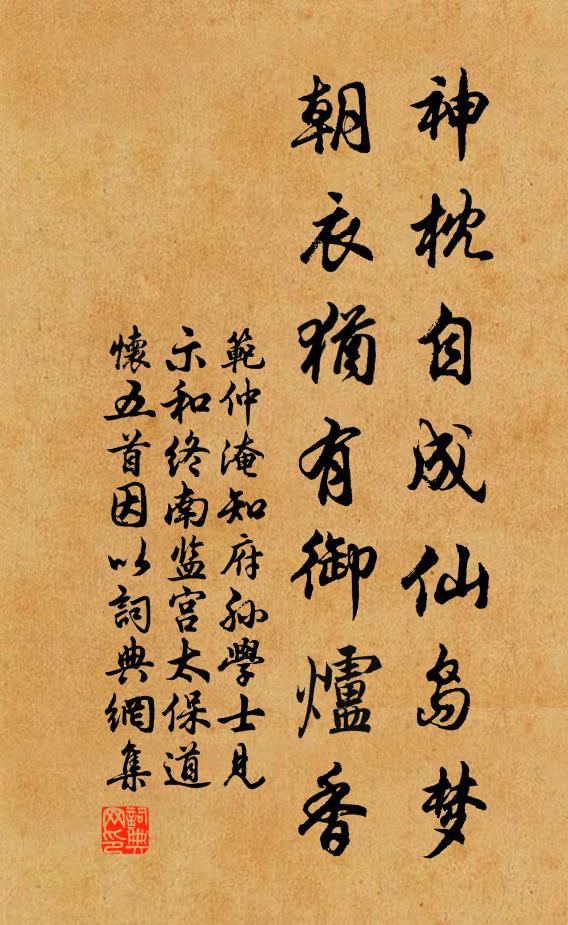 神枕自成仙岛梦
朝衣猶有御爐香
範仲淹知府孙學士見
示和终南监宫太保道
懷五首因以詞典網集
詞典
网印